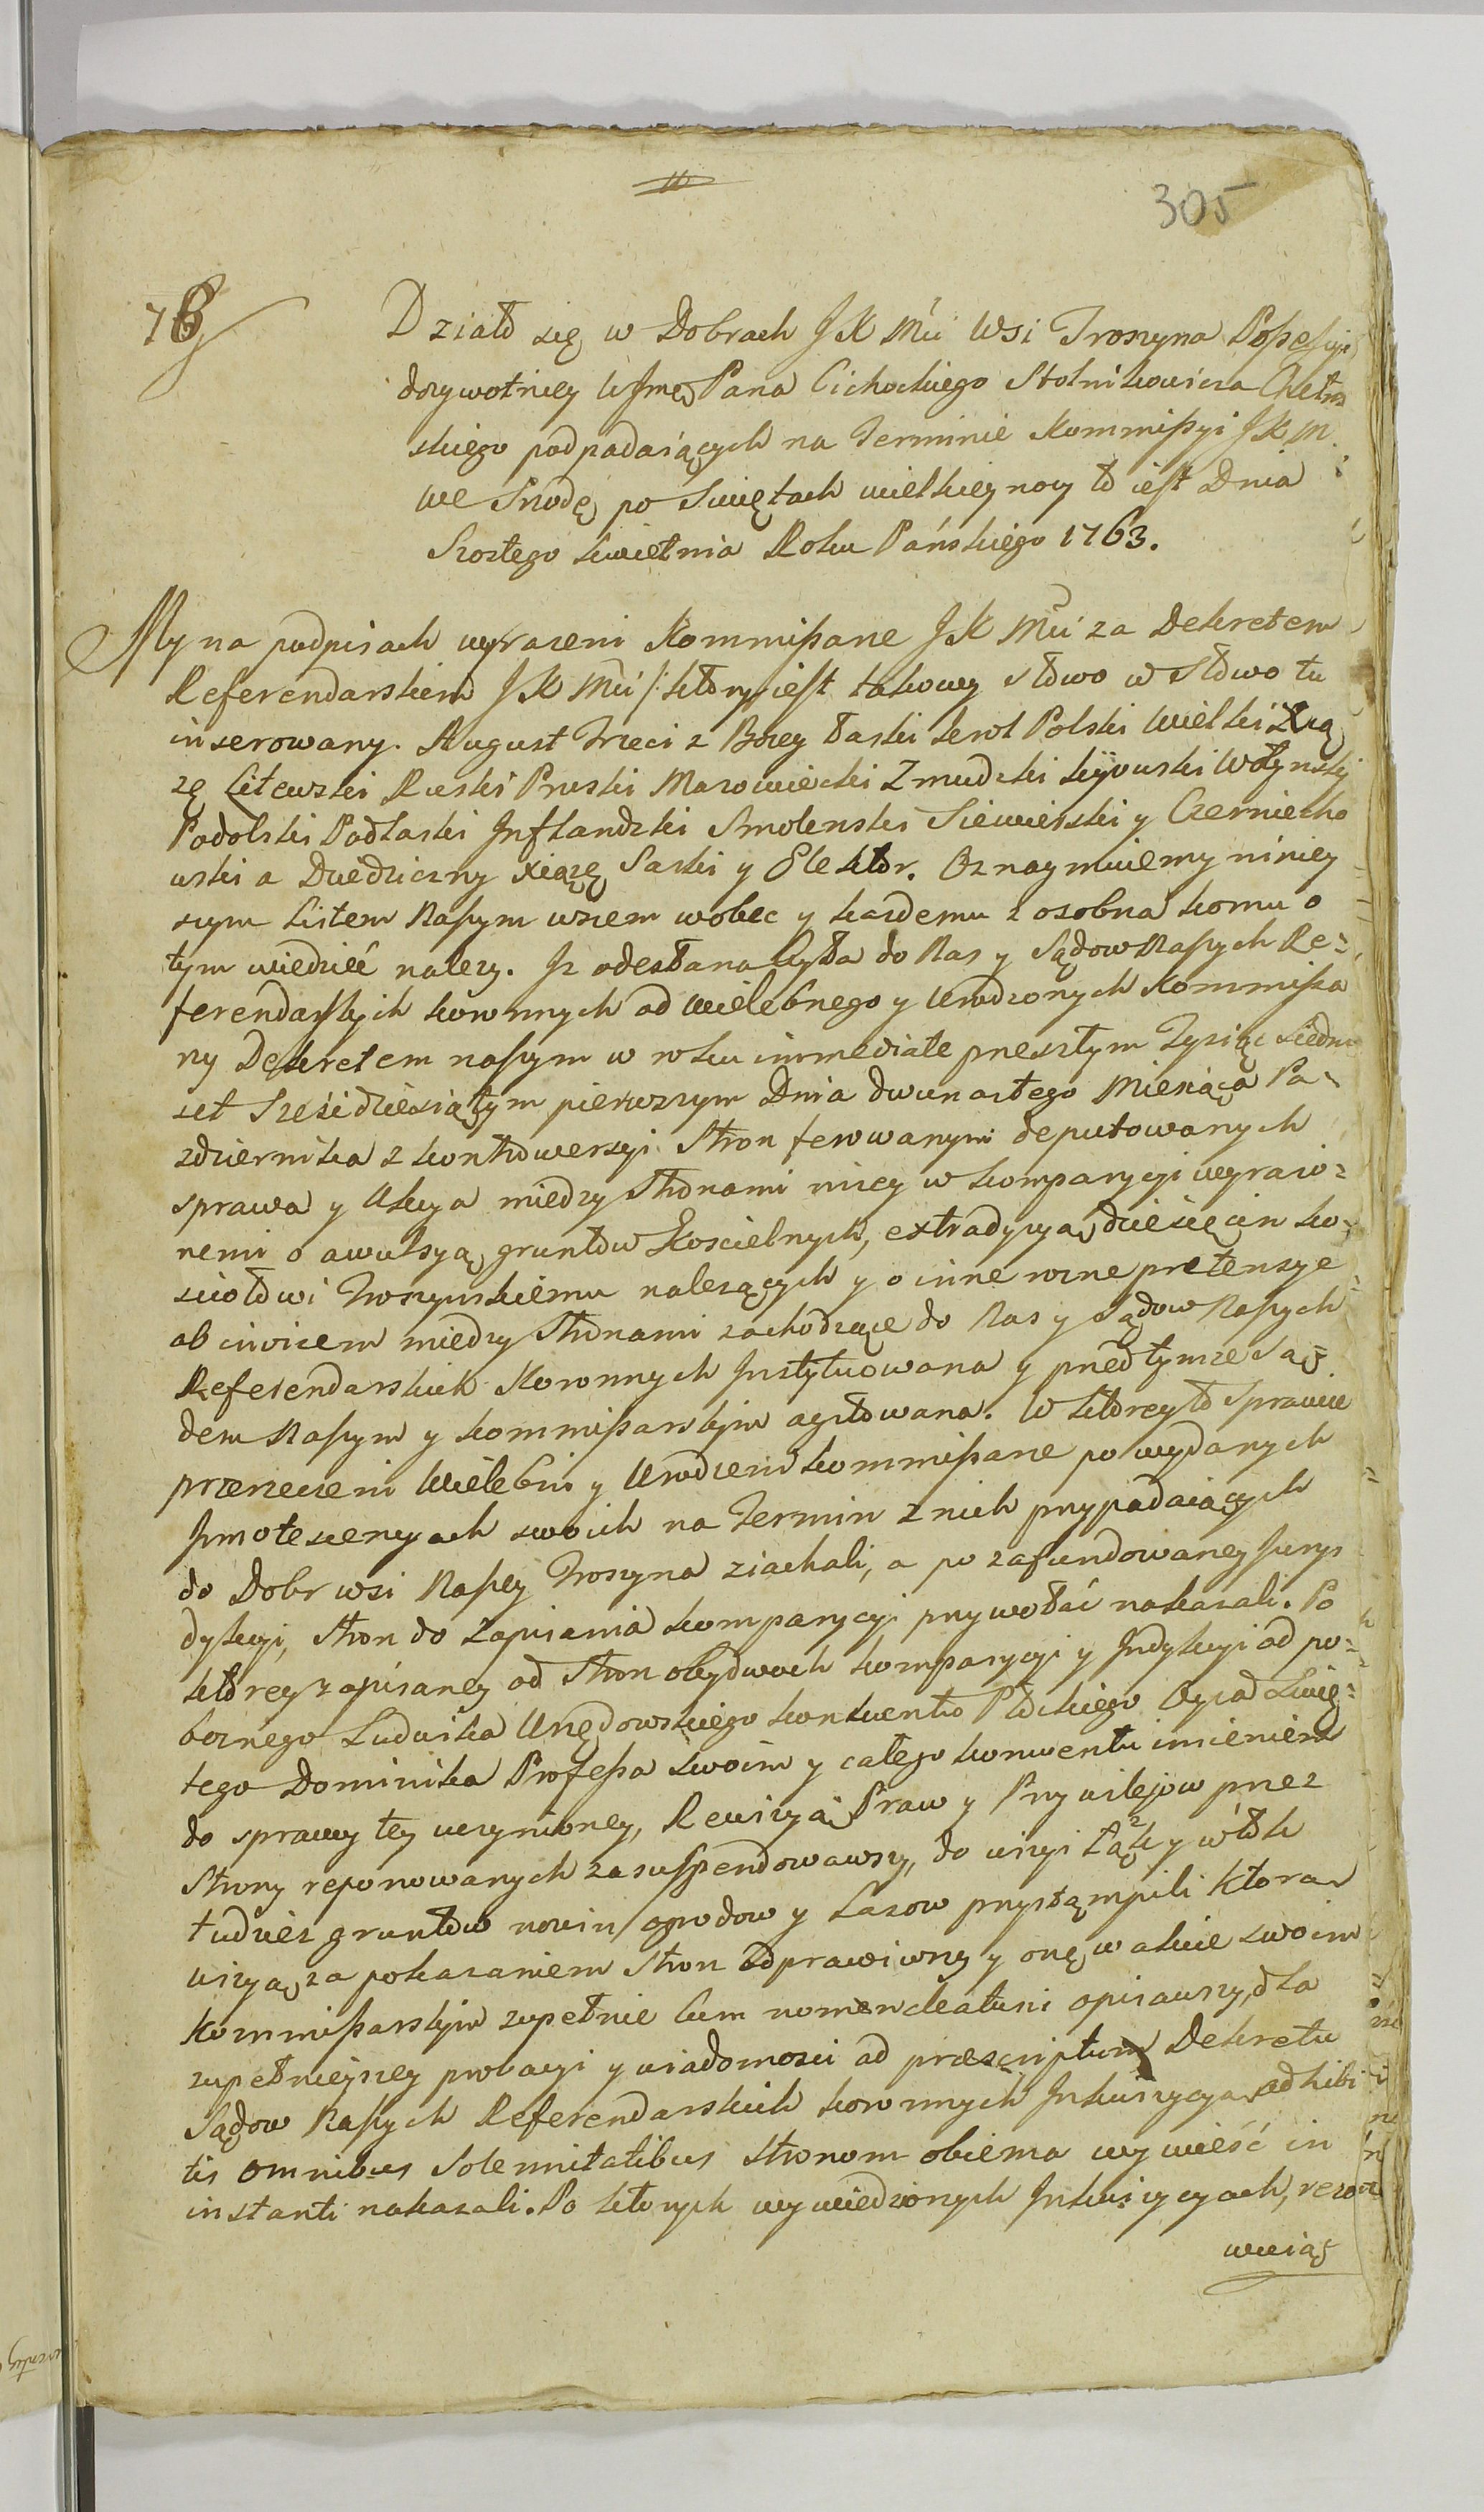 305
76
Działo się w Dobrach JK Mci Wsi Troszyna Possessyi
dozywotniey WJmę Pana Cichockiego Stolnikowicza Chełm
skiego podpadaiących na Terminie Kommissyi JKM
we Srodę po Swiętach wielkieynocy to iest Dnia
Szostego kwietnia Roku Pańskiego 1763.
My na podpisach wyrazeni Kommissarze JK Mci za Dekretem
Referendarskiem JK Mci /: ktory iest takowy słowo w słowo tu
inserowany. August Trzeci z Bozey łaski krol Polski Wielki Xią
zę Litewski Ruski Pruski Mazowiecki Zmudzki kÿowski Wołynski
Podolski Podlaski Inflandzki Smolenski Siewierski y Czerniecho
wski a Dziedziczny xiąze Saski y Elektor. Oznaymuiemy niniey
szym Listem Naszym wszem wobec y kazdemu z osobna komu o
tym wiedzieć nalezy. Iz odesłana była do Nas y Sądow Naszych Re=
ferendarskich koronnych od Wielebnego y Urodzonych Kommissa
rzy Dekretem naszym w roku immediate przeszłym Tysiąc siedm
set Szesćdziesiątym pierwszym Dnia dwunastego Miesiąca Pa=
zdziernika z kontrowersyi Stron ferowanym deputowanych
sprawa y Akcya miedzy Stronami nizey w komparycyi wyrazo=
nemi o awulsyą gruntow Koscielnych, extradycyą dziesięcin ko=
sciołowi Troszynskiemu nalezących y o inne rozne pretensye
ab invicem miedzy Stronami zachodzące do Nas y Sądow Naszych
Referendarskich Koronnych Instytuowana y przed tymze Są=
dem Naszym y kommissarskim agitowana. W ktorey to sprawie
przerzeczeni Wielebni y Urodzeni kommissarze po wydanych
Innotescencyach swoich na Termin z nich przypadaiących
do Dobr wsi Naszey Troszyna ziachali, a po zafundowaney Jurys
dykcyi, Stron do Zapisania komparycyi przywołać nakazali. Po
ktorey zapisaney od Stron obydwoch komparycyi y Indykcyi od po=
boznego Ludwika Urzędowskiego konwentu Płockiego Oyca Swię=
tego Dominika Professa swoim y całego konwentu imieniem
do sprawy tey uczynioney, Rewizyą Praw y Przywilejow przez
Strony reponowanych zasuspendowawszy, do wizyi Łąk y włok
tudziez gruntow nowin ogrodow y Lasow przystąmpili ktora
wizyą za pokazaniem Stron odprawiwszy y onę w akcie swoim
Kommissarskim zupełnie Cum nomenclaturi opisawszy, dla
zupełnieyszey probacyi y wiadomosci ad præscriptum Dekretu
Sądow Naszych Referendarskich koronnych Inkwizycyą adhibi
tis omnibus Solemnitatibus Stronom obiema wywieść in
instanti nakazali. Po ktorych wywiedzionych Inkwizycyach, rezo
wuiąc